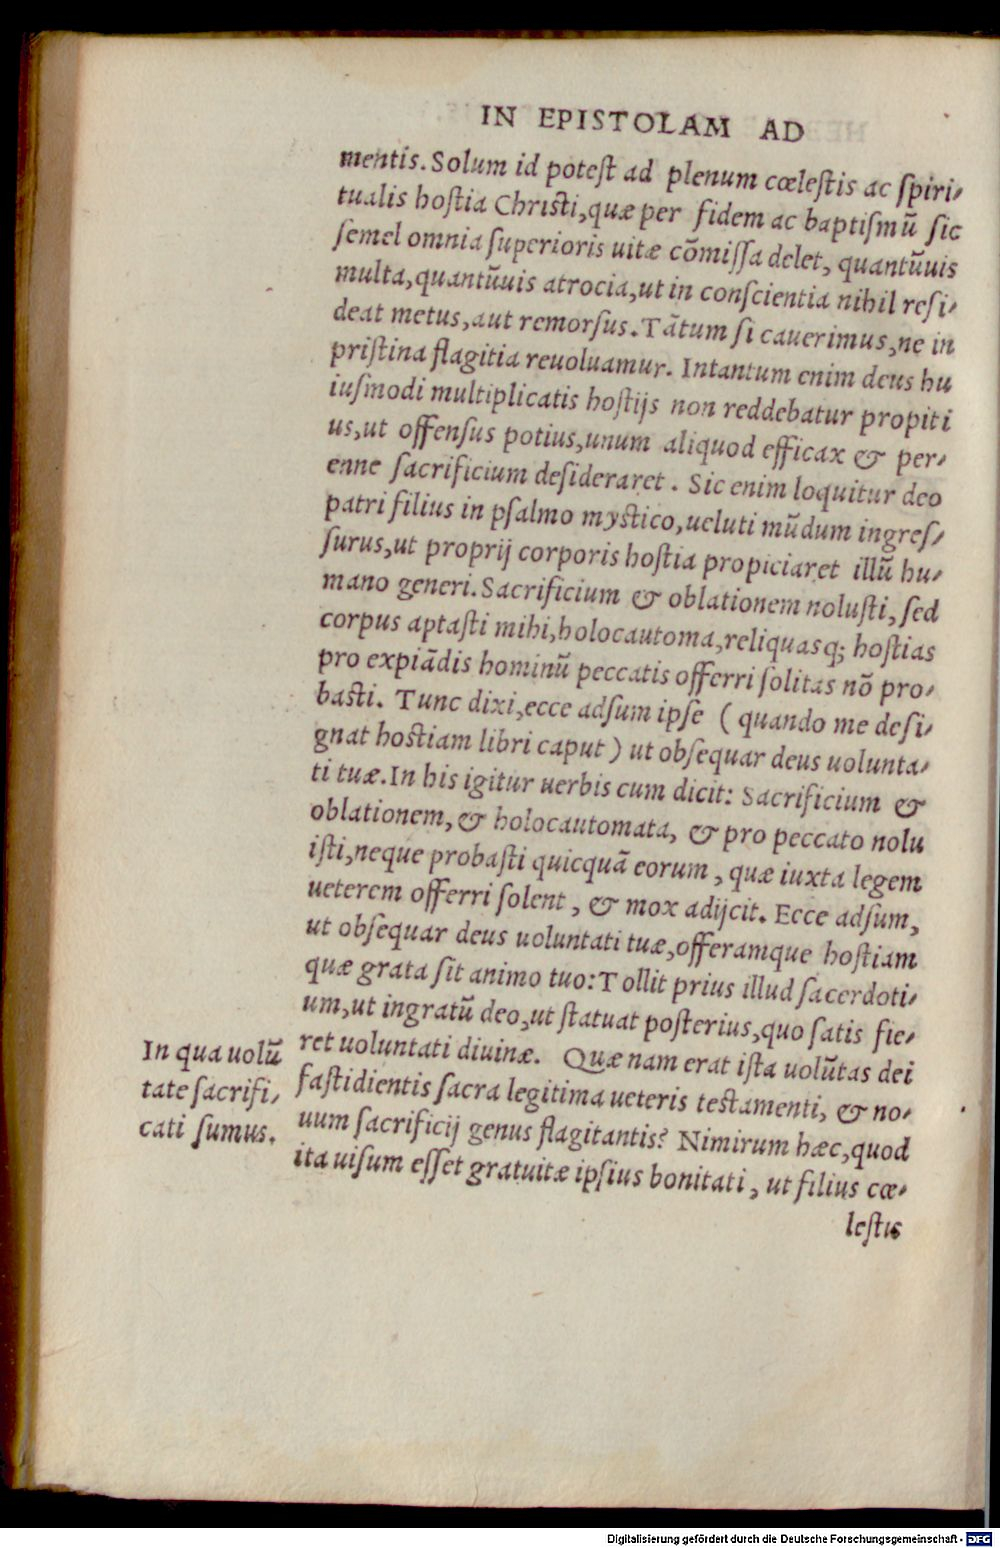 IN EPISTOLAM AD
mentis. Solum id poteſt ad plenum cœleſtis ac ſpiri-
tualis hoſtia Chriſti, quæ per fidem ac baptiſmũ ſic
ſemel omnia ſuperioris uitæ cõmiſſa delet, quantũuis
multa, quantũuis atrocia, ut in conſcientia nihil reſi-
deat metus, aut remorſus. Tãtum ſi cauerimus, ne in
priſtina flagitia reuoluamur. Intantum enim deus hu
iuſmodi multiplicatis hoſtijs non reddebatur propiti
us, ut offenſus potius, unum aliquod efficax & per-
enne ſacrificium deſideraret. Sic enim loquitur deo
patri filius in pſalmo myſtico, ueluti mũdum ingreſ-
ſurus, ut proprij corporis hoſtia propiciaret illũ hu-
mano generi. Sacrificium & oblationem noluſti, ſed
corpus aptaſti mihi, holocautoma, reliquasq; hoſtias
pro expiãdis hominũ peccatis offerri ſolitas nõ pro-
baſti. Tunc dixi, ecce adſum ipſe (quando me deſi-
gnat hoſtiam libri caput) ut obſequar deus uolunta-
ti tuæ. In his igitur uerbis cum dicit: Sacrificium &
oblationem, & holocautomata, & pro peccato nolu
iſti, neque probaſti quicquã eorum, quæ iuxta legem
ueterem offerri ſolent, & mox adijcit. Ecce adſum,
ut obſequar deus uoluntati tuæ, offeramque hoſtiam
quæ grata ſit animo tuo: Tollit prius illud ſacerdoti-
um, ut ingratũ deo, ut ſtatuat poſterius, quo ſatis fie-
ret uoluntati diuinæ. Quæ nam erat iſta uolũtas dei
faſtidientis ſacra legitima ueteris teſtamenti, & no-
uum ſacrificij genus flagitantis? Nimirum hæc, quod
ita uiſum eſſet gratuitæ ipſius bonitati, ut filius cœ-
leſtis
In qua uolũ
tate ſacrifi-
cati ſumus.
Digitalisierung gefördert durch die Deutsche Forschungsgemeinschaft - DFG